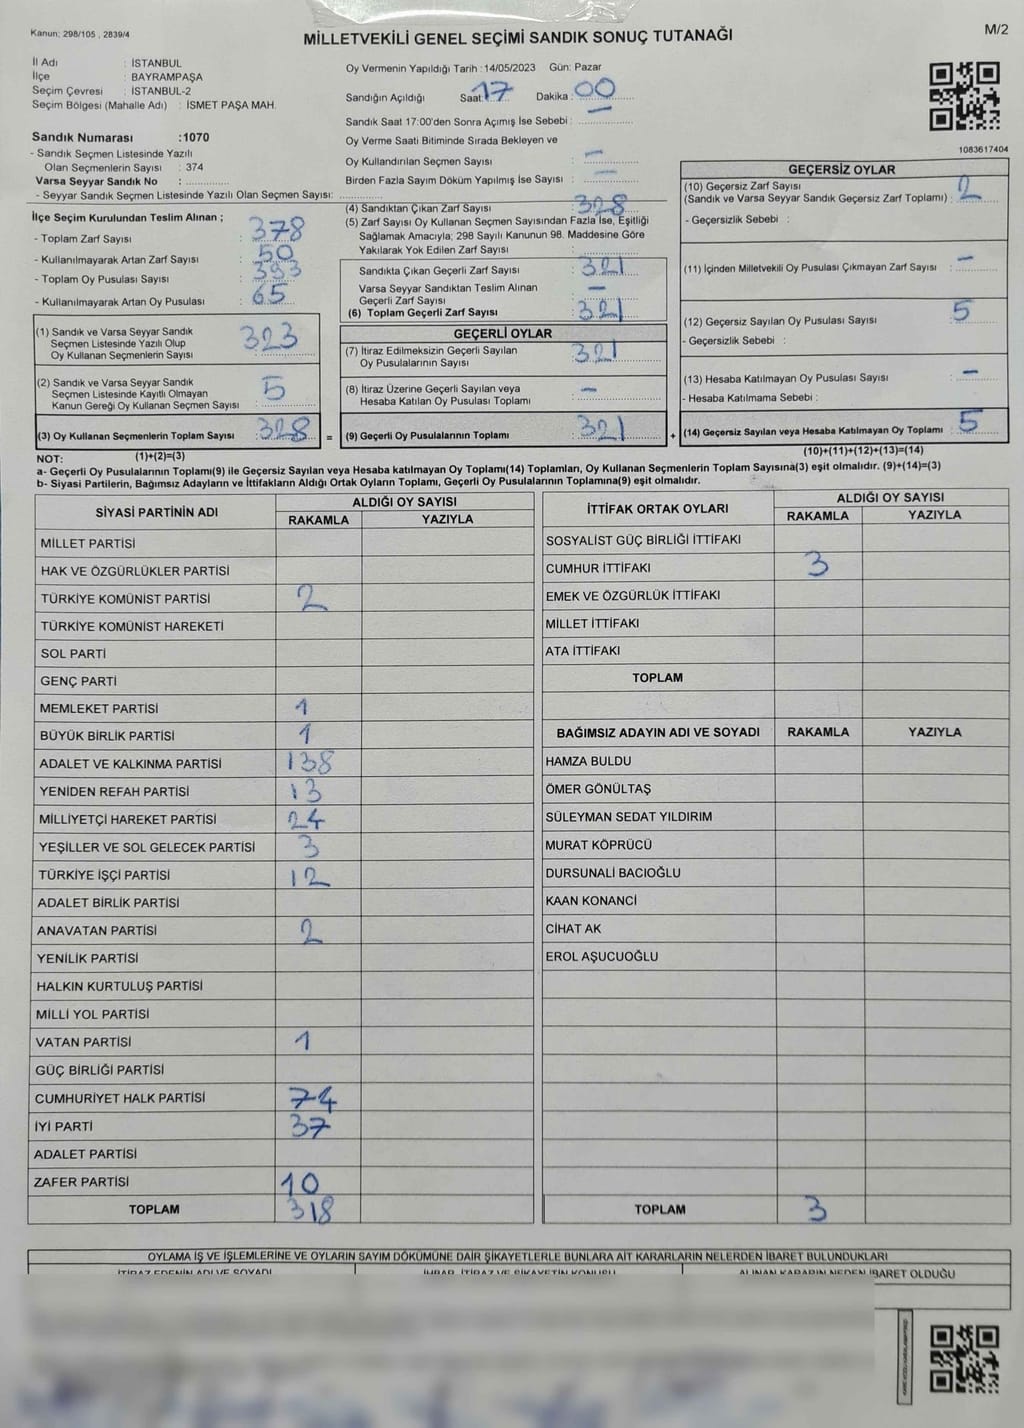 Kanun: 298/105 , 2839/4
MİLLETVEKİLİ GENEL SEÇİMİ SANDIK SONUÇ TUTANAĞI
M/2
İl Adı : İSTANBUL
İlçe : BAYRAMPAŞA
Seçim Çevresi : İSTANBUL-2
Seçim Bölgesi (Mahalle Adı) : İSMET PAŞA MAH.
Sandık Numarası :1070
- Sandık Seçmen Listesinde Yazılı
Olan Seçmenlerin Sayısı : 374
Varsa Seyyar Sandık No : ..............
- Seyyar Sandık Seçmen Listesinde Yazılı Olan Seçmen Sayısı: ..............
Oy Vermenin Yapıldığı Tarih :14/05/2023 Gün: Pazar
Sandığın Açıldığı Saat: 17 Dakika : 00
Sandık Saat 17:00'den Sonra Açımış İse Sebebi : —
Oy Verme Saati Bitiminde Sırada Bekleyen ve
Oy Kullandırılan Seçmen Sayısı : —
Birden Fazla Sayım Döküm Yapılmış İse Sayısı : —
1083617404
İlçe Seçim Kurulundan Teslim Alınan ;
- Toplam Zarf Sayısı : 378
- Kullanılmayarak Artan Zarf Sayısı : 50
- Toplam Oy Pusulası Sayısı : 393
- Kullanılmayarak Artan Oy Pusulası : 65
(1) Sandık ve Varsa Seyyar Sandık
Seçmen Listesinde Yazılı Olup
Oy Kullanan Seçmenlerin Sayısı : 323
(2) Sandık ve Varsa Seyyar Sandık
Seçmen Listesinde Kayıtlı Olmayan
Kanun Gereği Oy Kullanan Seçmen Sayısı : 5
(3) Oy Kullanan Seçmenlerin Toplam Sayısı : 328 =
(4) Sandıktan Çıkan Zarf Sayısı : 328
(5) Zarf Sayısı Oy Kullanan Seçmen Sayısından Fazla İse, Eşitliği
Sağlamak Amacıyla; 298 Sayılı Kanunun 98. Maddesine Göre
Yakılarak Yok Edilen Zarf Sayısı :
Sandıkta Çıkan Geçerli Zarf Sayısı : 321
Varsa Seyyar Sandıktan Teslim Alınan
Geçerli Zarf Sayısı : —
(6) Toplam Geçerli Zarf Sayısı : 321
GEÇERLİ OYLAR
(7) İtiraz Edilmeksizin Geçerli Sayılan
Oy Pusulalarının Sayısı : 321
(8) İtiraz Üzerine Geçerli Sayılan veya
Hesaba Katılan Oy Pusulası Toplamı : —
(9) Geçerli Oy Pusulalarının Toplamı : 321 +
GEÇERSİZ OYLAR
(10) Geçersiz Zarf Sayısı
(Sandık ve Varsa Seyyar Sandık Geçersiz Zarf Toplamı) : 2
- Geçersizlik Sebebi :
(11) İçinden Milletvekili Oy Pusulası Çıkmayan Zarf Sayısı : —
(12) Geçersiz Sayılan Oy Pusulası Sayısı : 5
- Geçersizlik Sebebi :
(13) Hesaba Katılmayan Oy Pusulası Sayısı : —
- Hesaba Katılmama Sebebi :
(14) Geçersiz Sayılan veya Hesaba Katılmayan Oy Toplamı : 5
NOT: (1)+(2)=(3) (10)+(11)+(12)+(13)=(14)
a- Geçerli Oy Pusulalarının Toplamı(9) ile Geçersiz Sayılan veya Hesaba katılmayan Oy Toplamı(14) Toplamları, Oy Kullanan Seçmenlerin Toplam Sayısına(3) eşit olmalıdır. (9)+(14)=(3)
b- Siyasi Partilerin, Bağımsız Adayların ve İttifakların Aldığı Ortak Oyların Toplamı, Geçerli Oy Pusulalarının Toplamına(9) eşit olmalıdır.
SİYASİ PARTİNİN ADI ALDIĞI OY SAYISI
RAKAMLA YAZIYLA
MİLLET PARTİSİ
HAK VE ÖZGÜRLÜKLER PARTİSİ
TÜRKİYE KOMÜNİST PARTİSİ 2
TÜRKİYE KOMÜNİST HAREKETİ
SOL PARTİ
GENÇ PARTİ
MEMLEKET PARTİSİ 1
BÜYÜK BİRLİK PARTİSİ 1
ADALET VE KALKINMA PARTİSİ 138
YENİDEN REFAH PARTİSİ 13
MİLLİYETÇİ HAREKET PARTİSİ 24
YEŞİLLER VE SOL GELECEK PARTİSİ 3
TÜRKİYE İŞÇİ PARTİSİ 12
ADALET BİRLİK PARTİSİ
ANAVATAN PARTİSİ 2
YENİLİK PARTİSİ
HALKIN KURTULUŞ PARTİSİ
MİLLİ YOL PARTİSİ
VATAN PARTİSİ 1
GÜÇ BİRLİĞİ PARTİSİ
CUMHURİYET HALK PARTİSİ 74
İYİ PARTİ 37
ADALET PARTİSİ
ZAFER PARTİSİ 10
TOPLAM 318
İTTİFAK ORTAK OYLARI ALDIĞI OY SAYISI
RAKAMLA YAZIYLA
SOSYALİST GÜÇ BİRLİĞİ İTTİFAKI
CUMHUR İTTİFAKI 3
EMEK VE ÖZGÜRLÜK İTTİFAKI
MİLLET İTTİFAKI
ATA İTTİFAKI
TOPLAM
BAĞIMSIZ ADAYIN ADI VE SOYADI RAKAMLA YAZIYLA
HAMZA BULDU
ÖMER GÖNÜLTAŞ
SÜLEYMAN SEDAT YILDIRIM
MURAT KÖPRÜCÜ
DURSUNALİ BACIOĞLU
KAAN KONANCİ
CİHAT AK
EROL AŞUCUOĞLU
TOPLAM 3
OYLAMA İŞ VE İŞLEMLERİNE VE OYLARIN SAYIM DÖKÜMÜNE DAİR ŞİKAYETLERLE BUNLARA AİT KARARLARIN NELERDEN İBARET BULUNDUKLARI
İTİRAZ EDENİN ADI VE SOYADI İHBAR, İTİRAZ VE ŞİKAYETİN KONUSU ALINAN KARARIN NEDEN İBARET OLDUĞU